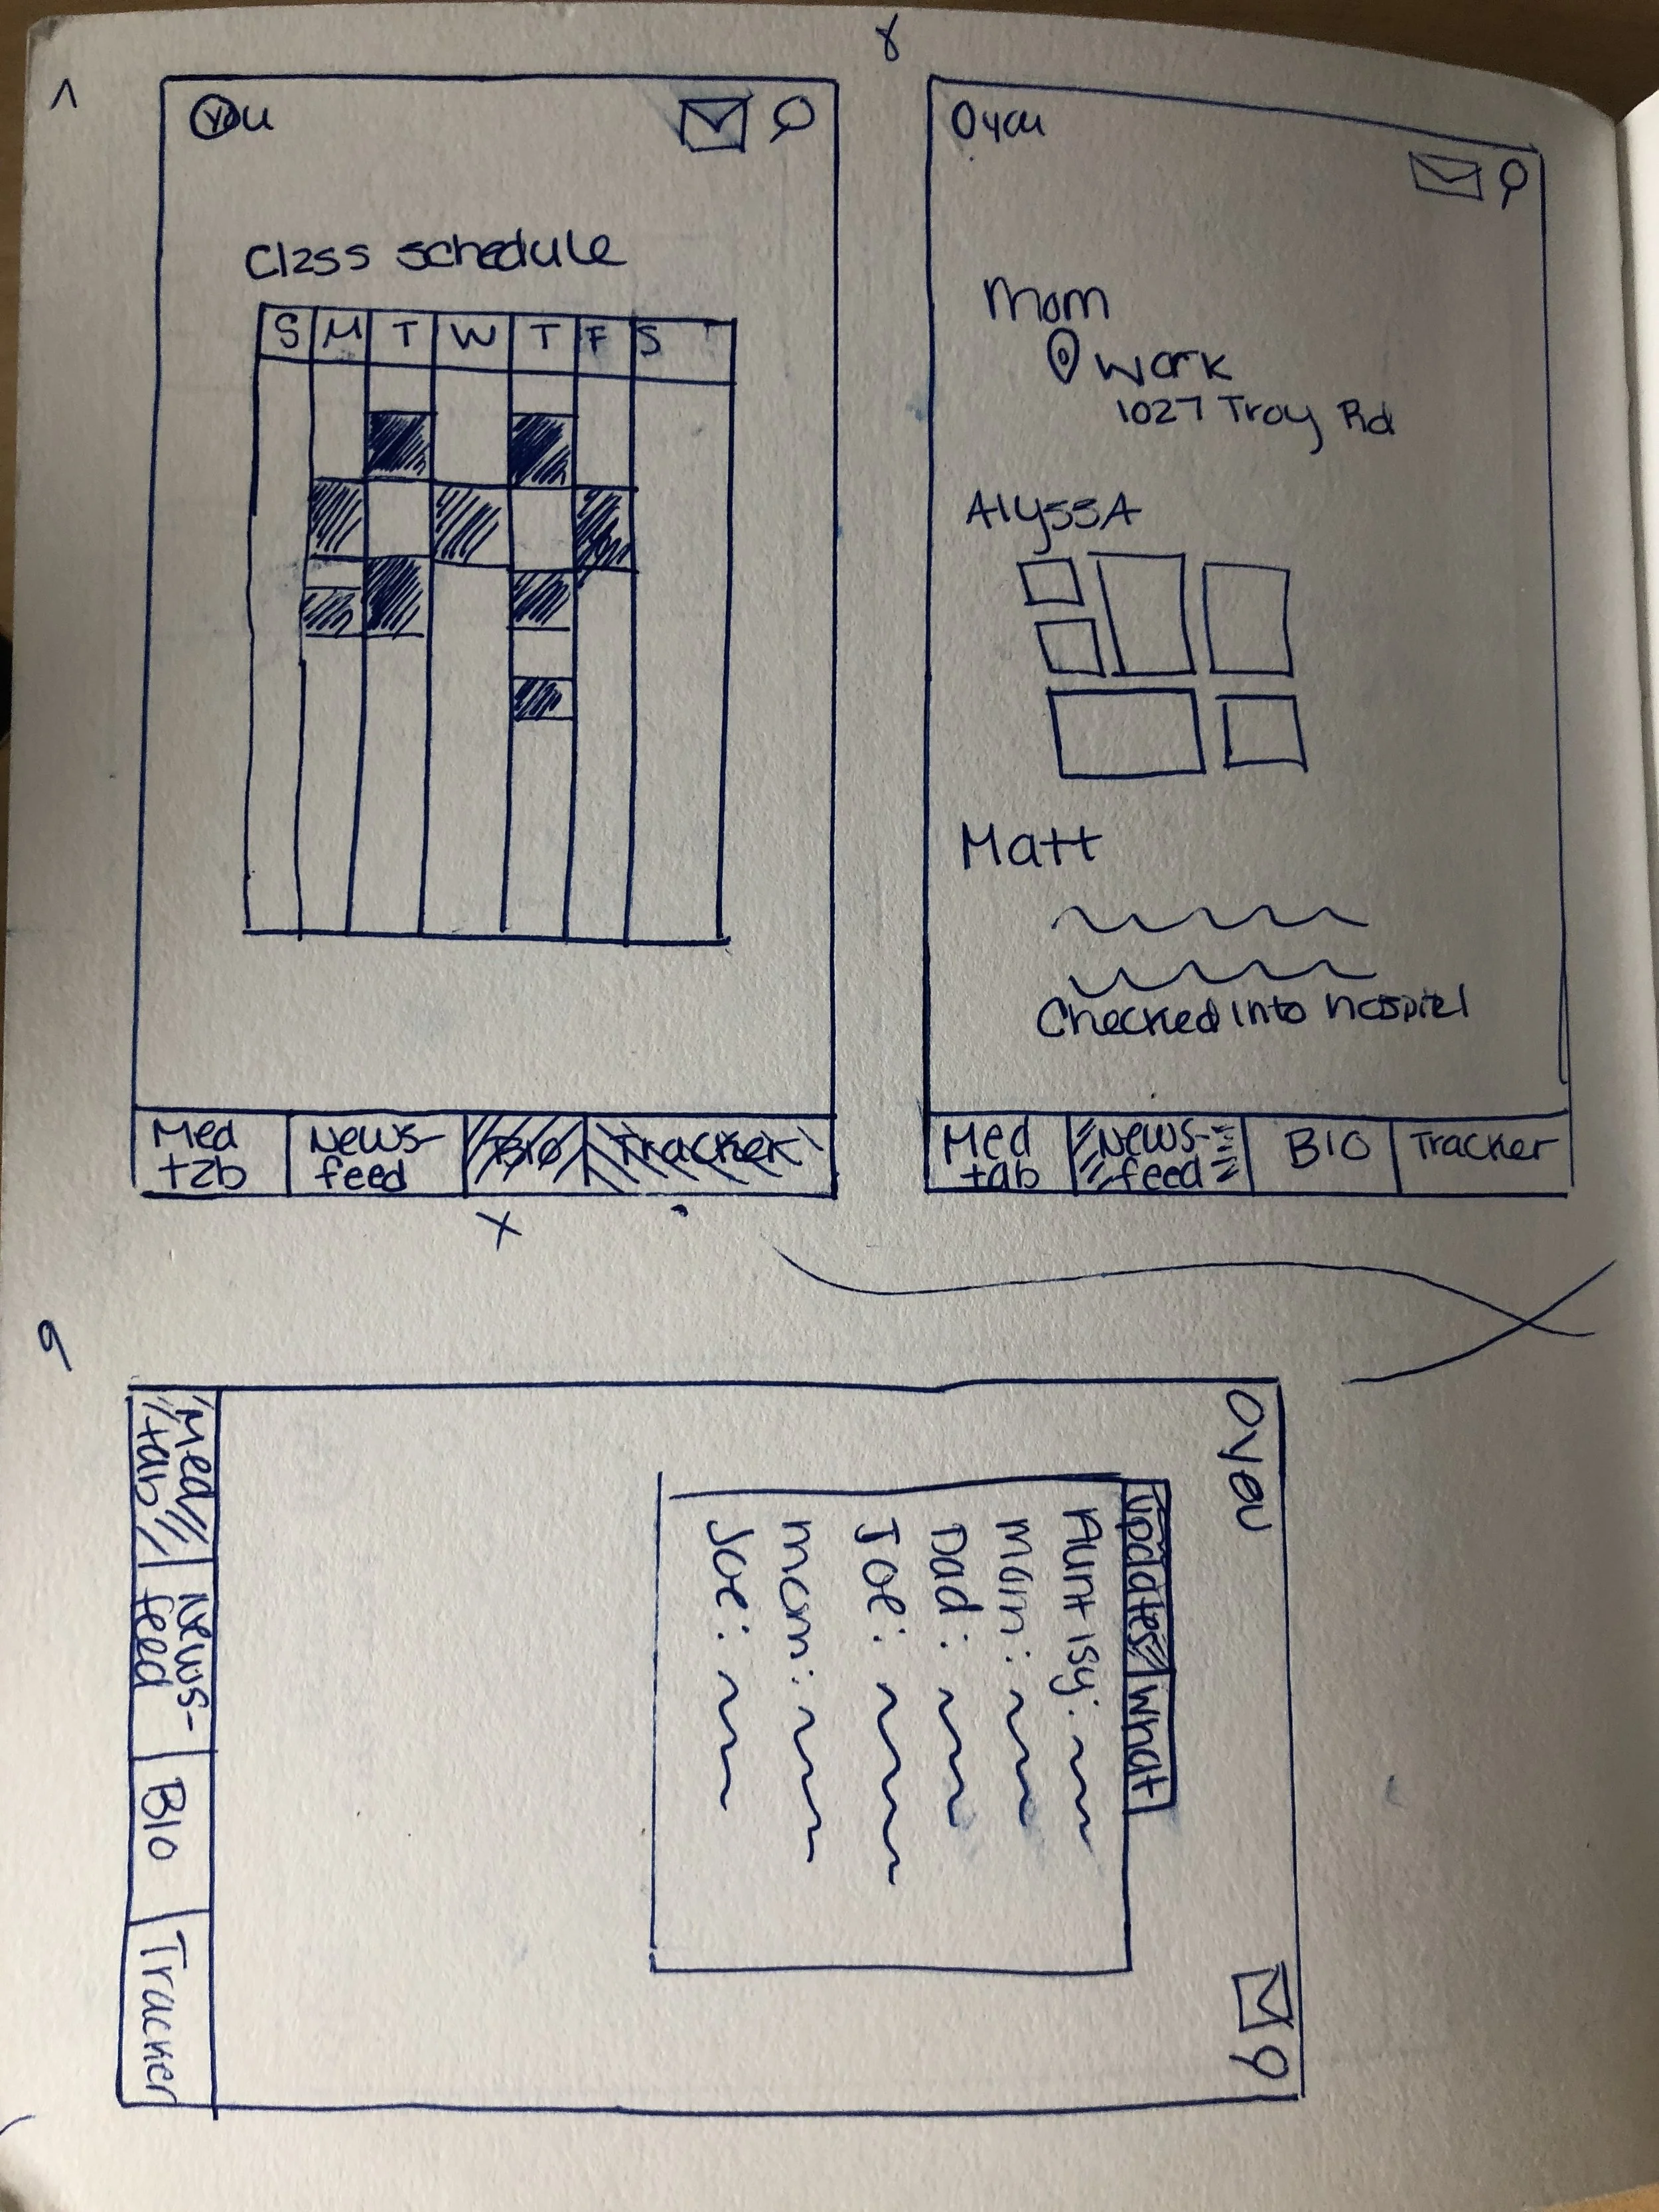 8
You
Class schedule
S M T W T F S
Med
tab
News-
feed
Bio
Tracker
X
O you
Mom
Work
1027 Troy Rd
AlyssA
Matt
Checked into
Med
tab
News-
feed
BIO
Tracker
9
O you
Updates
What
Aunt Isy:
Dad:
Joe:
Mom:
Joe:
Med
tab
News-
feed
BIO
Tracker